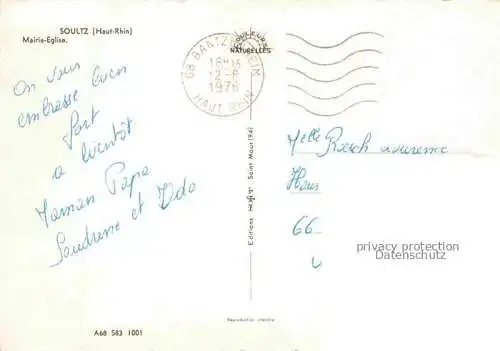 SOULTZ (Haut-Rhin)
Mairie-Eglise.
COULEURS
NATURELLES
68 BANTZENHEIM
18H15
12-8
1976
HAUT RHIN
On vous
embrasse bien
fort
a bientôt
Maman Papa
Sandrine et Ido
Melle Rosch
Haus
66
privacy protection
Datenschutz
Editions Saint Maur (94)
Reproduction interdite
A68 583 1001